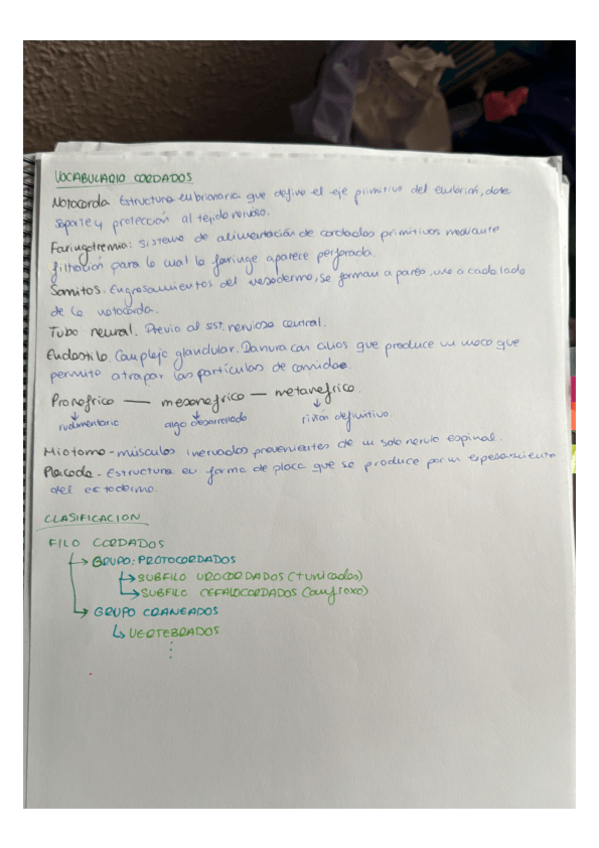 VOCABULARIO CORDADOS
Notocorda. Estructura embrionaria que define el eje primitivo del embrión, dote
soporte y protección al tejido nervioso.
Faringotremia: Sistema de alimentación de cordados primitivos mediante
filtración para lo cual la faringe aparece perforada.
Somitos. Engrosamientos del mesodermo, se forman a pares, uno a cada lado
de la notocorda.
Tubo neural. Previo al sist. nervioso central.
Endostilo. Complejo glandular. Danura con cilios que produce un moco que
permite atrapar las partículas de comida.
Pronefrico — mesonefrico — metanefrico.
rudimentario algo desarrollado riñón definitivo.
Miotomo - músculos inervados provenientes de un solo nervio espinal.
Placoda - Estructura en forma de placa que se produce por un espesamiento
del ectodermo.
CLASIFICACION
FILO CORDADOS
GRUPO: PROTOCORDADOS
SUBFILO UROCORDADOS (tunicados)
SUBFILO CEFALOCORDADOS (anfioxo)
GRUPO CRANEADOS
VERTEBRADOS